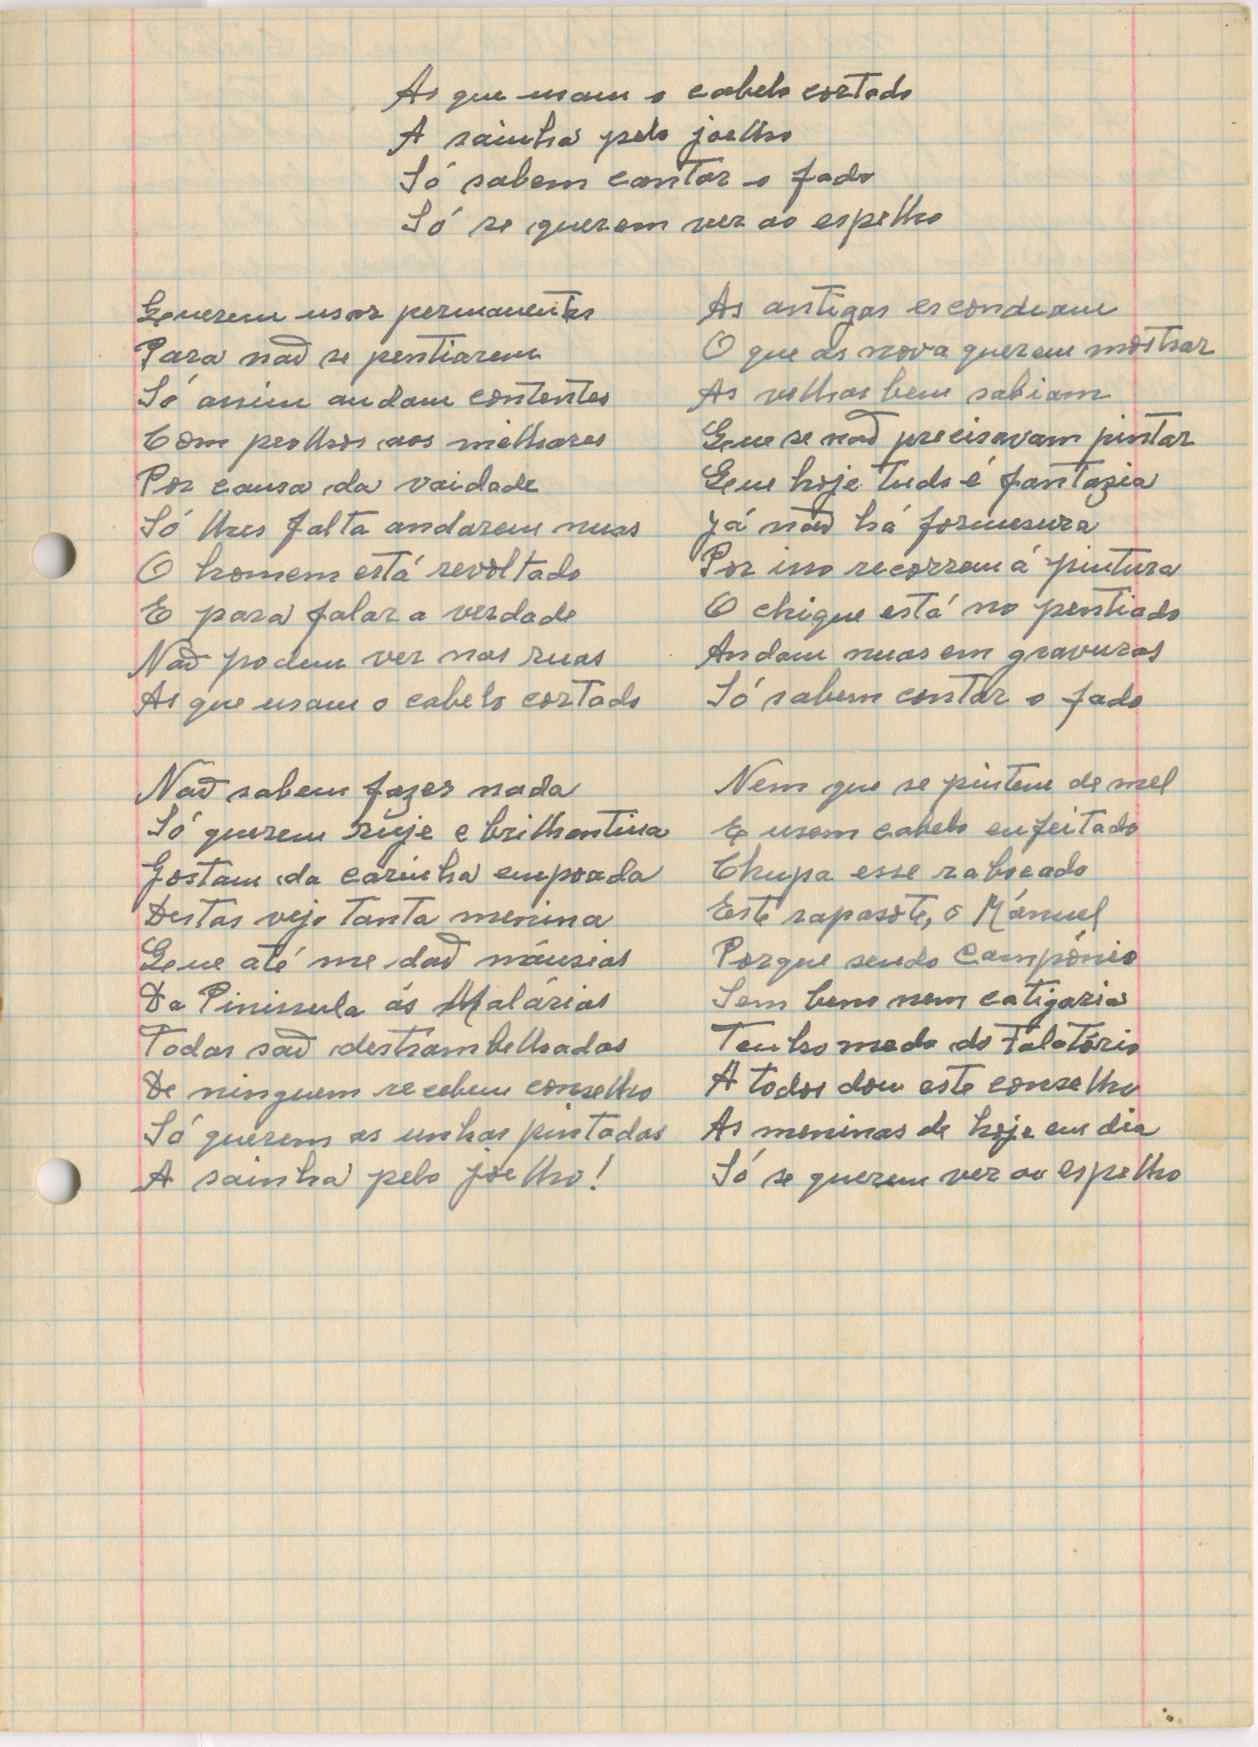 As que usam o cabelo cortado
A sainha pelo joelho
Só sabem cantar o fado
Só se querem ver ao espelho

Querem usar permanentes
Para não se pentiarem
Só assim andam contentes
Com piolhos aos milhares
Por causa da vaidade
Só lhes falta andarem nuas
O homem está revoltado
E para falar a verdade
Não podem ver nas ruas
As que usam o cabelo cortado

As antigas escondeam
O que as nova querem mostrar
As velhas bem sabiam
Que se não precisavam pintar
Que hoje tudo é fantazia
Já não há formusura
Por isso recorrem á pintura
O chique está no pentiado
Andam nuas em gravuras
Só sabem contar o fado

Não sabem fazer nada
Só querem ruje e brilhantina
Gostam da carinha empoada
Destas vejo tanta menina
Que até me dão náusias
Da Pininsula ás Malárias
Todas são destrambelhadas
De ninguem recebem conselho
Só querem as unhas pintadas
A sainha pelo joelho!

Nem que se pintem de mel
E usem cabelo enfeitado
Chupa esse rabiado
Este rapasote, o Mánuel
Porque sendo Campónio
Sem bens nem catigaria
Tenho medo do falatório
A todos dou este conselho
As meninas de hoje em dia
Só se querem ver ao espelho